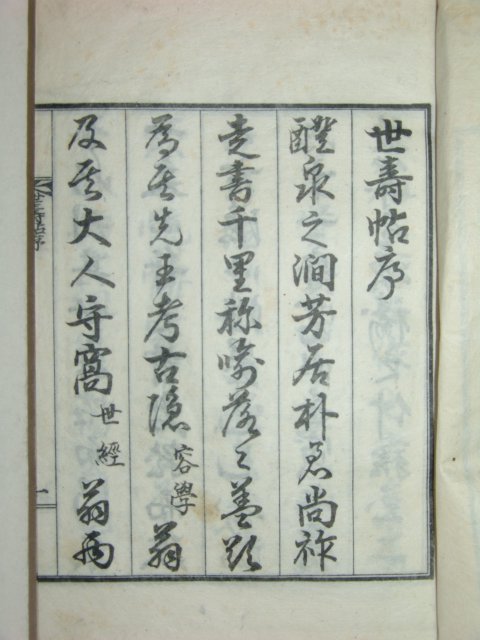 世壽帖序
醴泉之澗芳居朴君尚祚
走書千里称喩落々盖欲
爲其先王考古隠容學翁
及其大人守窩世經翁兩
世壽帖序
一